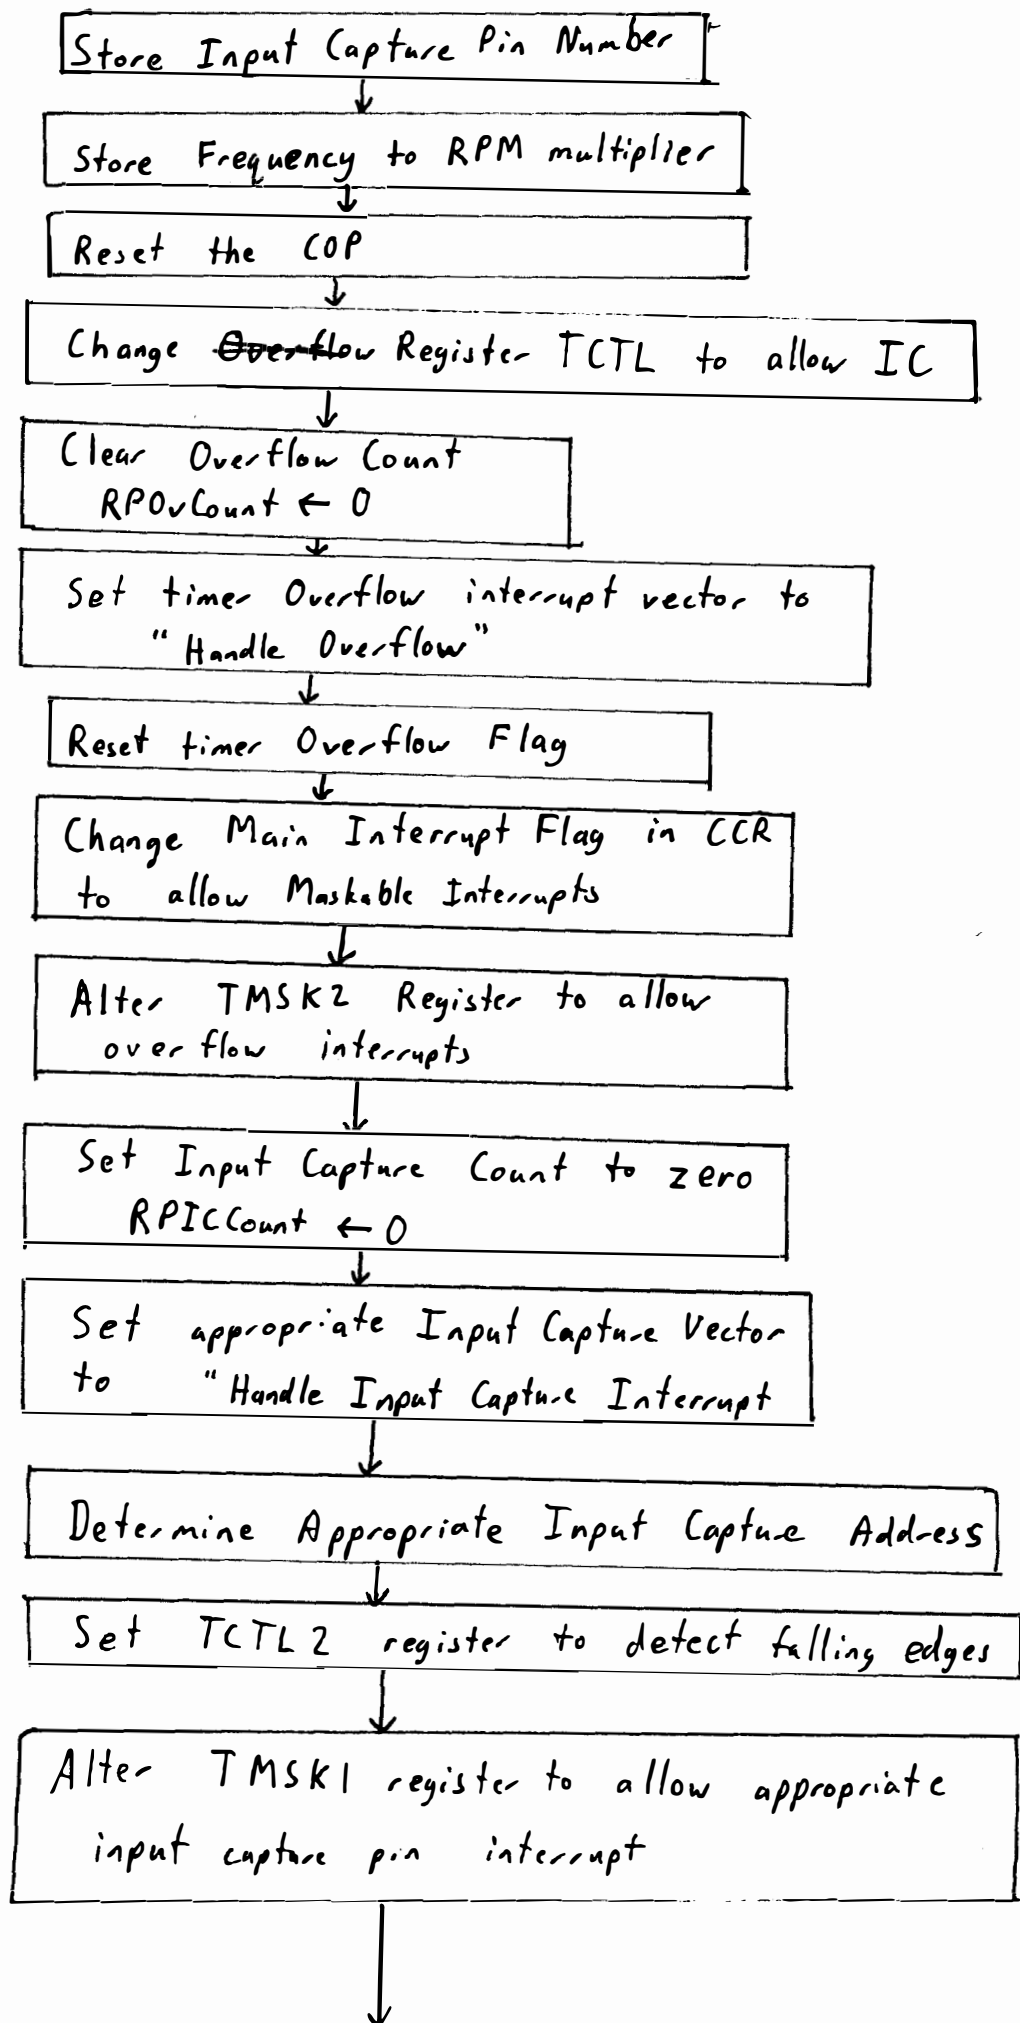 Store Input Capture Pin Number
Store Frequency to RPM multiplier
Reset the COP
Change Overflow Register TCTL to allow IC
Clear Overflow Count
RPOvCount ← 0
Set timer Overflow interrupt vector to
"Handle Overflow"
Reset timer Overflow Flag
Change Main Interrupt Flag in CCR
to allow Maskable Interrupts
Alter TMSK2 Register to allow
overflow interrupts
Set Input Capture Count to zero
RPICCount ← 0
Set appropriate Input Capture Vector
to "Handle Input Capture Interrupt
Determine Appropriate Input Capture Address
Set TCTL2 register to detect falling edges
Alter TMSK1 register to allow appropriate
input capture pin interrupt